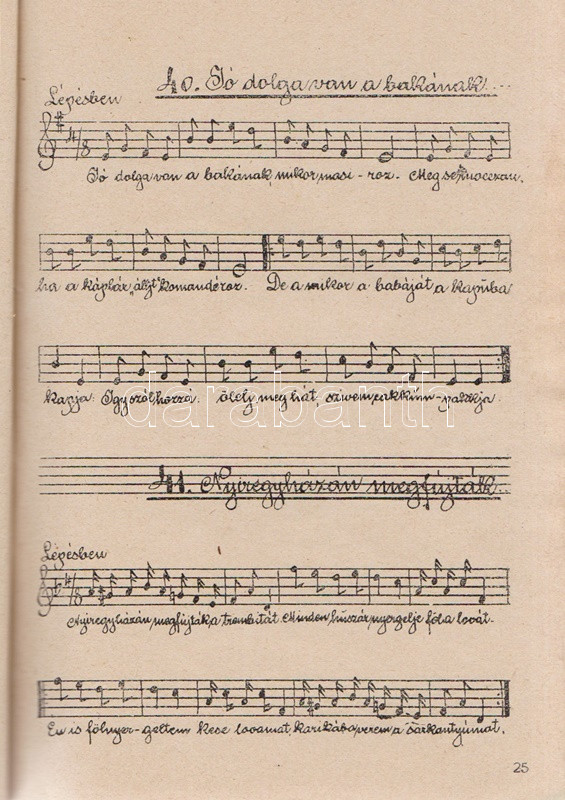 40. Jó dolga van a bakának...
Lépésben
4/8
Jó dolga van a bakának, mikor masi-roz. Meg se mozzan,
ha a káplár "állj!" komandéroz. De a mikor a babáját a kapuba
kapja: Így szól hozzá ölelj meg hát, szivem pakkum-pakkja.
darabanth
41. Nyiregyházán megfújták...
Lépésben
4/8
Nyiregyházán megfújták a trombitát. Minden huszár nyergelje föl a lovát.
Én is fölnyer-geltem kese lovamat, karikába verem a sarkantyúmat.
25